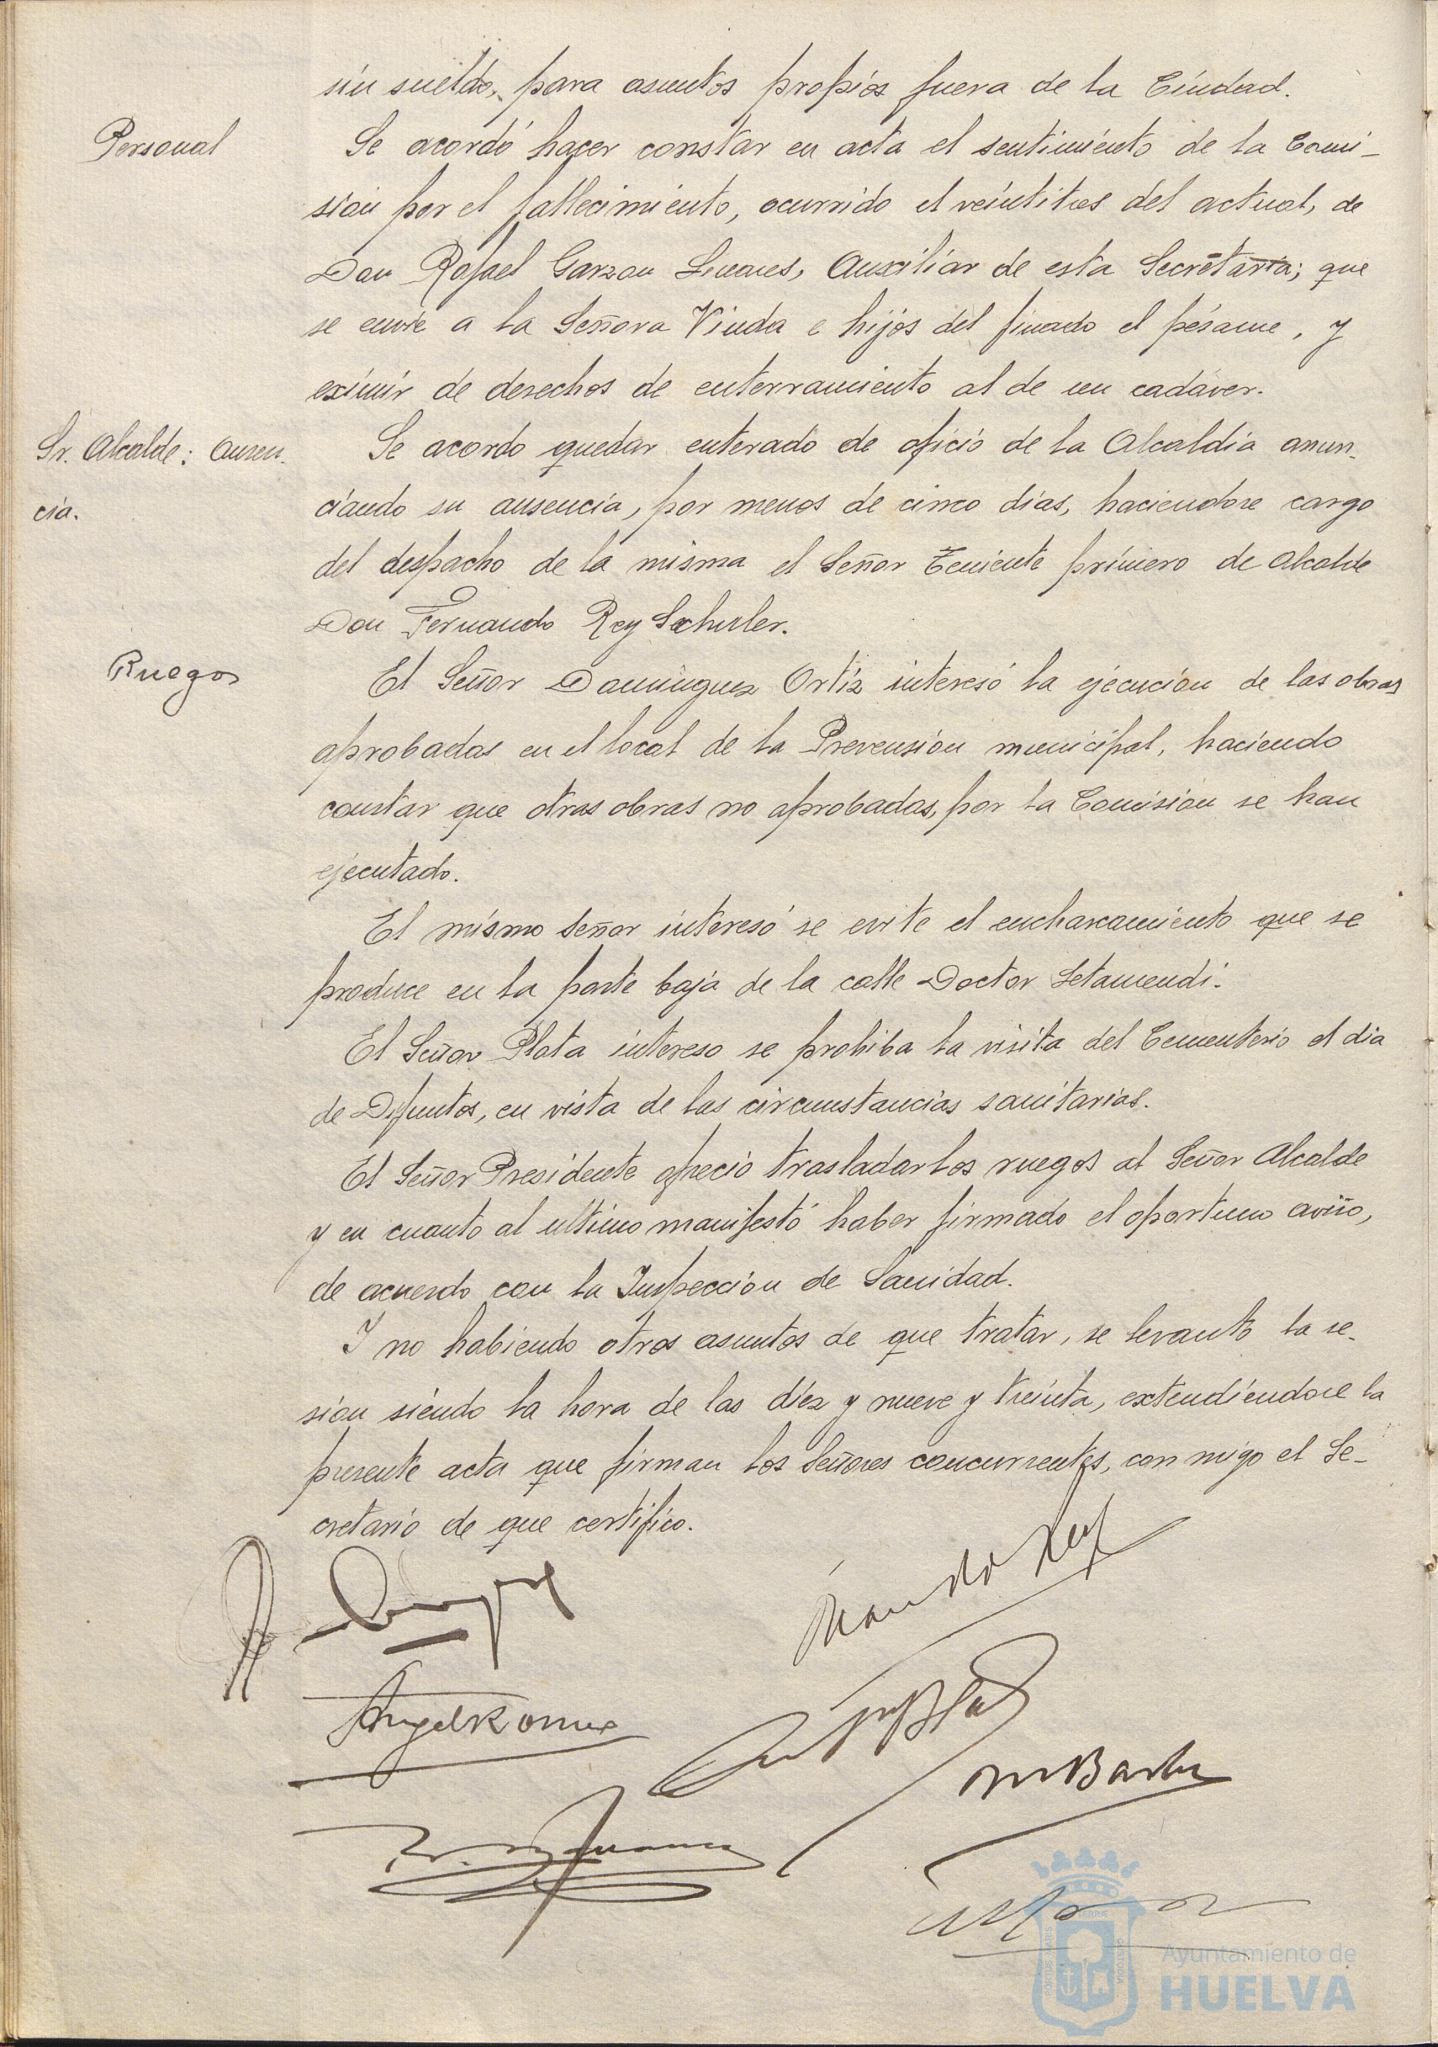 sin sueldo, para asuntos propios fuera de la Ciudad.
Personal
Se acordó hacer constar en acta el sentimiento de la Comi-
sion por el fallecimiento, ocurrido el veintitres del actual, de
Don Rafael Garzon Linares, Auxiliar de esta Secretaria; que
se envie a la Señora Viuda e hijos del finado el pésame, y
eximir de derechos de enterramiento al de un cadáver.
Sr. Alcalde: Ausen-
cia.
Se acordo quedar enterado de oficio de la Alcaldia anun-
ciando su ausencia, por menos de cinco dias, haciendose cargo
del despacho de la misma el Señor Teniente primero de Alcalde
Don Fernando Rey Schurler.
Ruegos
El Señor Dominguez Ortiz interesó la ejecución de las obras
aprobadas en el local de la Prevensión municipal, haciendo
constar que otras obras no aprobadas, por la Comisión se han
ejecutado.
El mismo Señor interesó se evite el encharcamiento que se
produce en la parte baja de la calle Doctor Letamendi.
El Señor Plata intereso se prohiba la visita del Cementerio el dia
de Difuntos, en vista de las circunstancias sanitarias.
El Señor Presidente ofreció trasladar los ruegos al Señor Alcalde
y en cuanto al ultimo manifestó haber firmado el oportuno aviso,
de acuerdo con la Inspección de Sanidad.
Y no habiendo otros asuntos de que tratar, se levantó la se-
sion siendo la hora de las diez y nueve y treinta, extendiendose la
presente acta que firman los Señores concurrentes, con migo el Se-
cretario de que certifico.
Fernando Rey
Angel Romero
M Barba
Ayuntamiento de
HUELVA